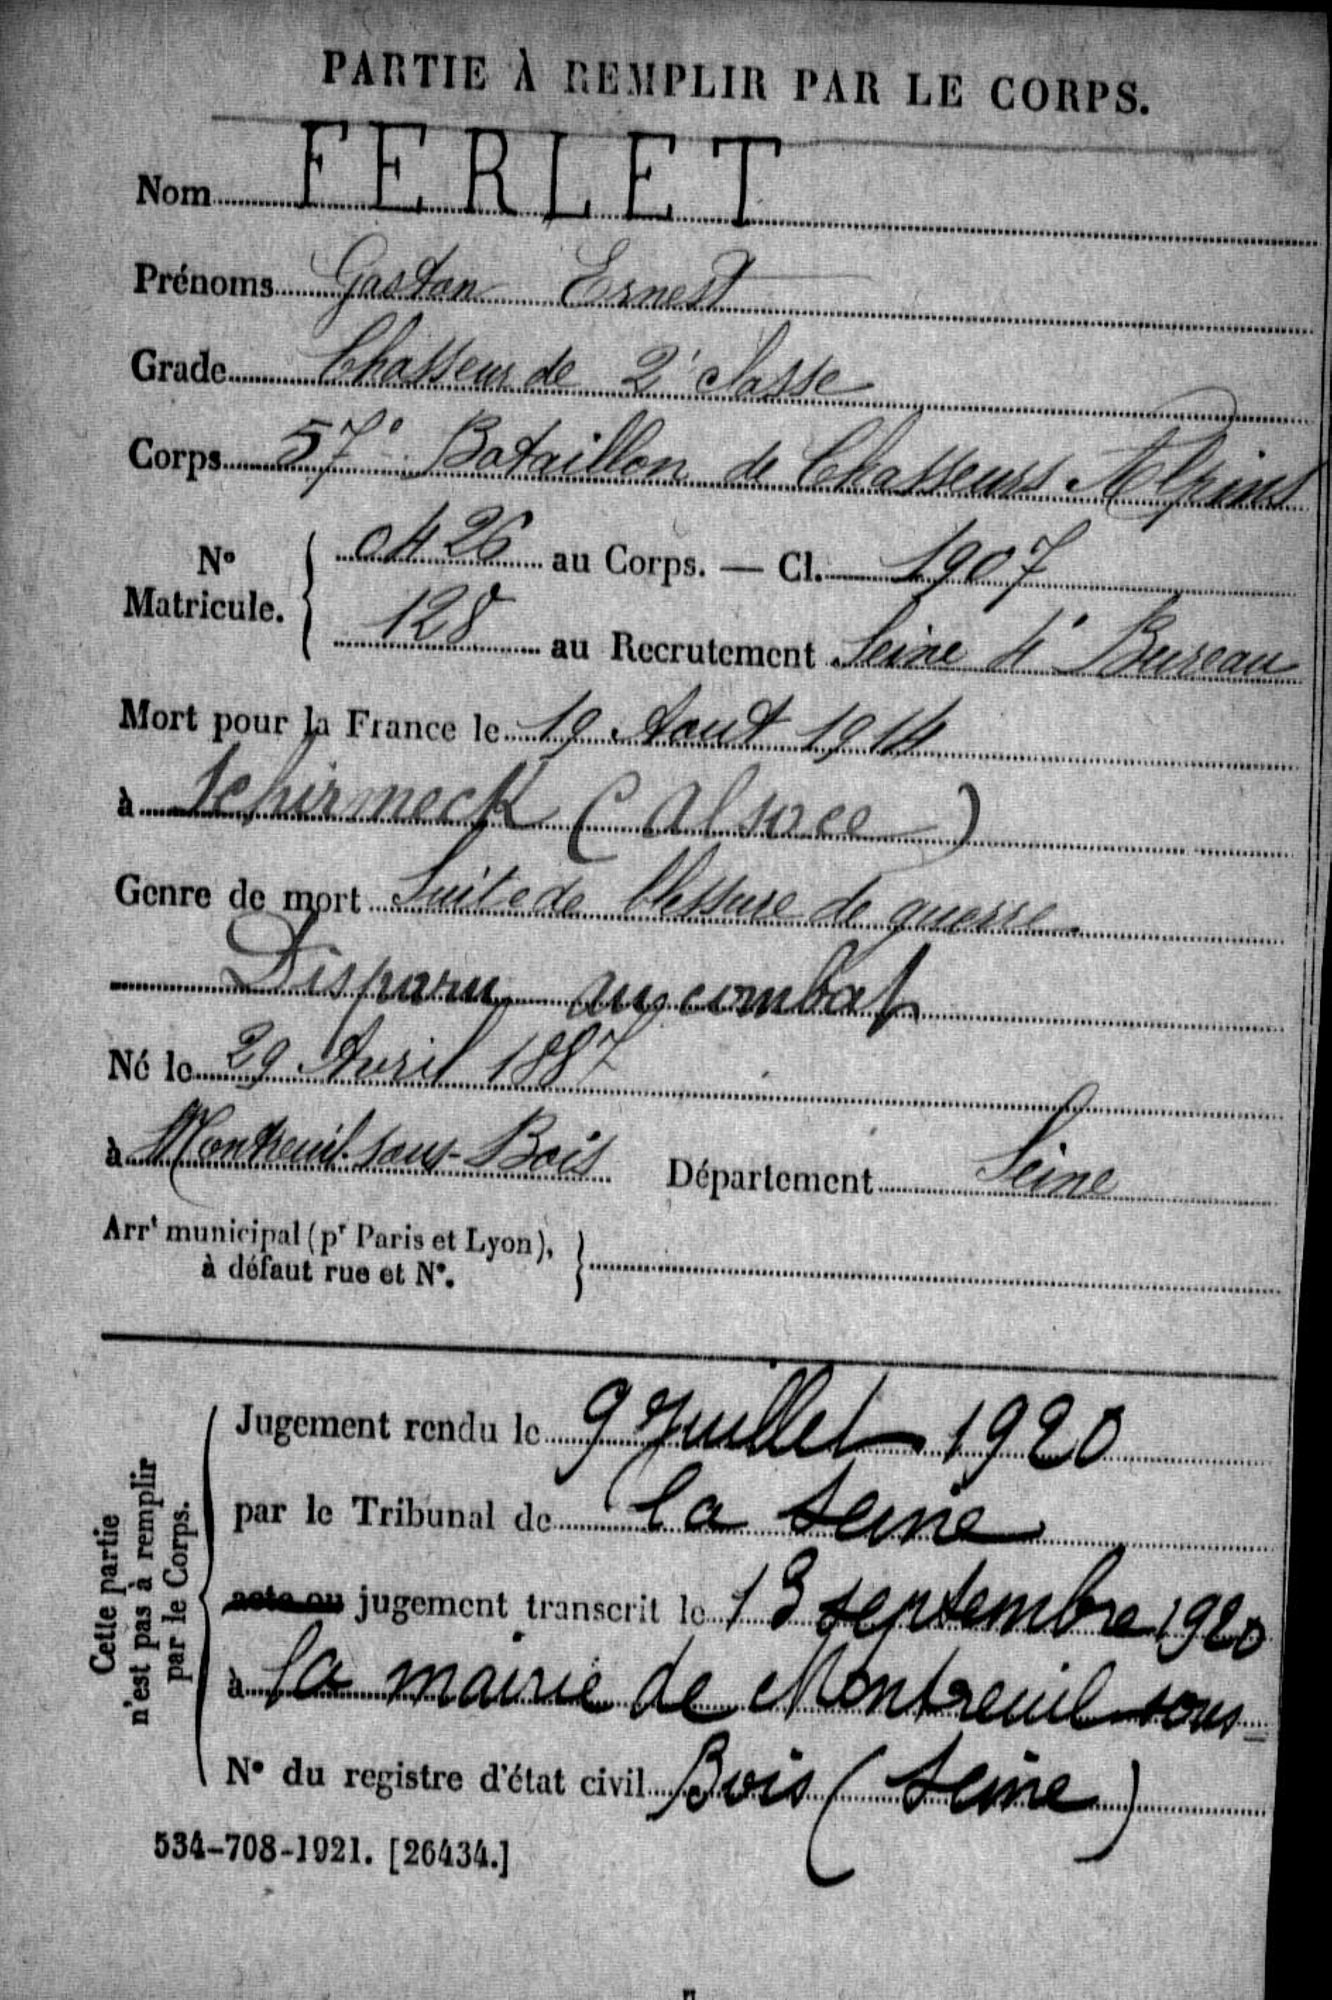 PARTIE À REMPLIR PAR LE CORPS.
Nom FERLET
Prénoms Gaston Ernest
Grade Chasseur de 2e classe
Corps 57e Bataillon de Chasseurs Alpins
No Matricule. { 0426 au Corps. — Cl. 1907
128 au Recrutement Seine 4e Bureau
Mort pour la France le 19 Aout 1914
à Schirmeck (Alsace)
Genre de mort Suite de blessure de guerre.
Disparu au combat
Né le 29 Avril 1887
à Montreuil-sous-Bois Département Seine
Arrt municipal (pr Paris et Lyon), }
à défaut rue et No.
Cette partie
n'est pas à remplir
par le Corps.
Jugement rendu le 9 Juillet 1920
par le Tribunal de la Seine
acte ou jugement transcrit le 13 septembre 1920
à la mairie de Montreuil-sous-
No du registre d'état civil Bois (Seine)
534-708-1921. [26434.]